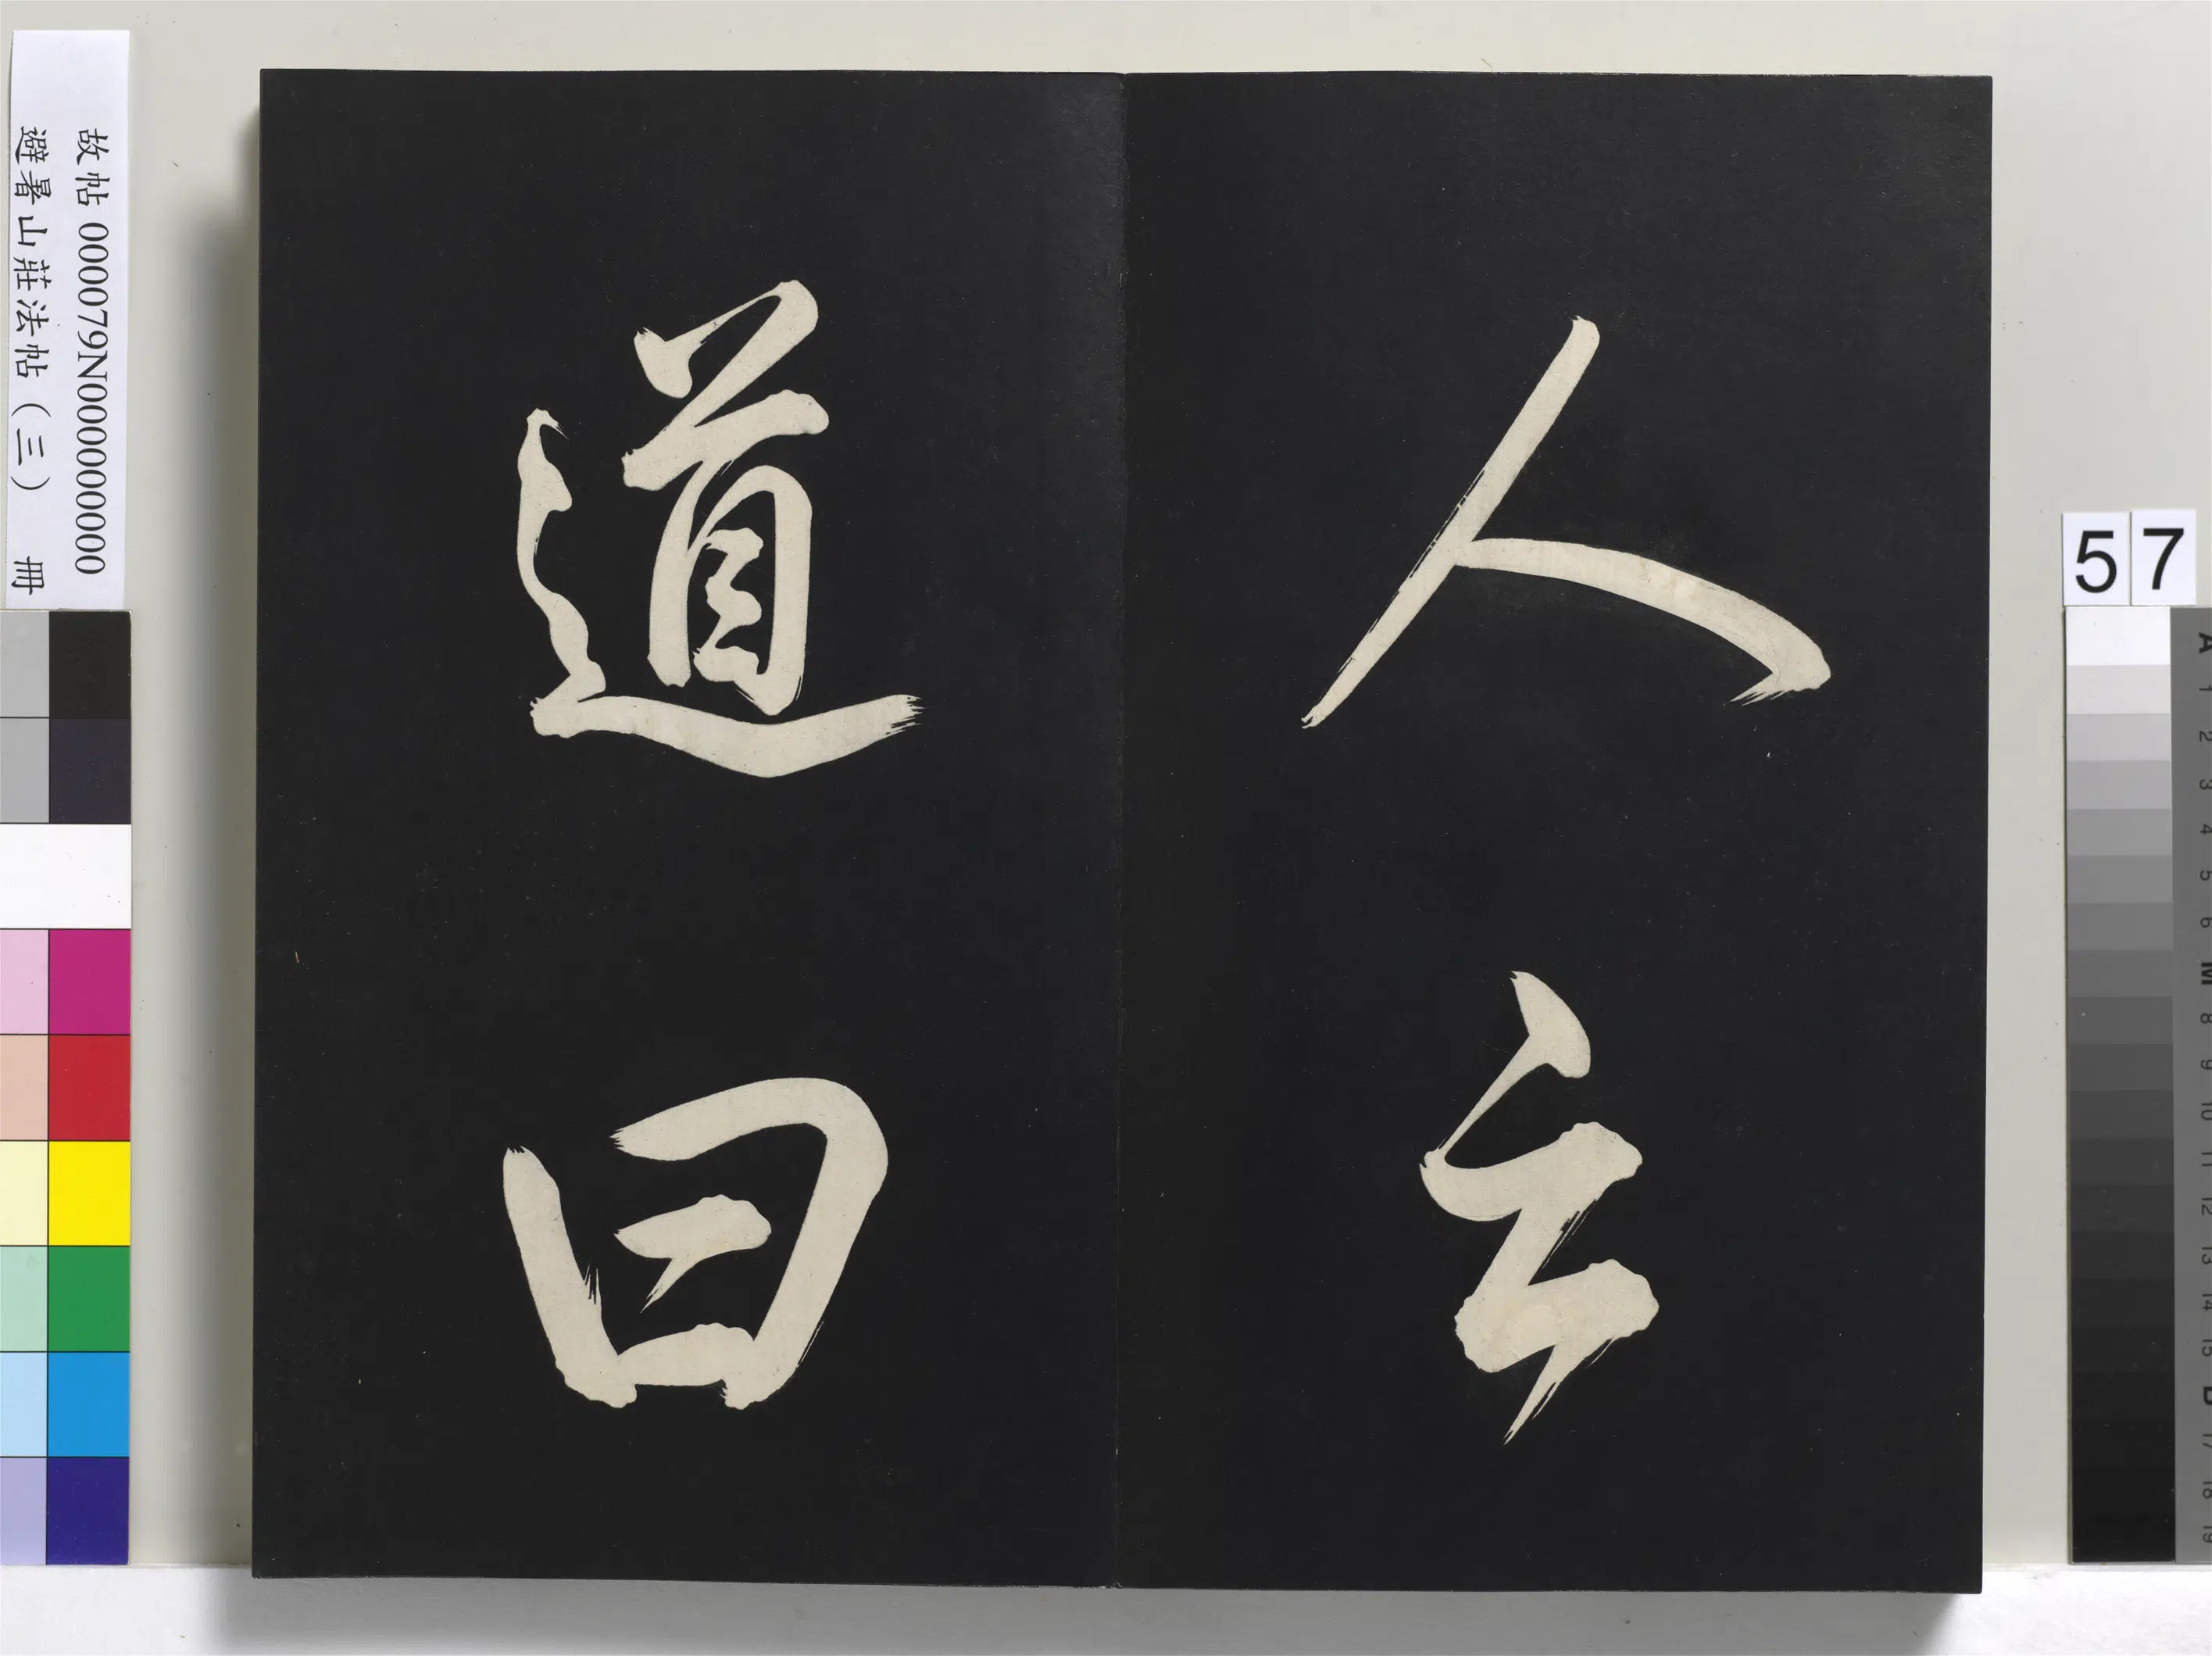 人之
道曰
故帖 000079N000000000
避暑山莊法帖（三） 冊
57
A 1 2 3 4 5 6 M 8 9 10 11 12 13 14 15 B 17 18 19